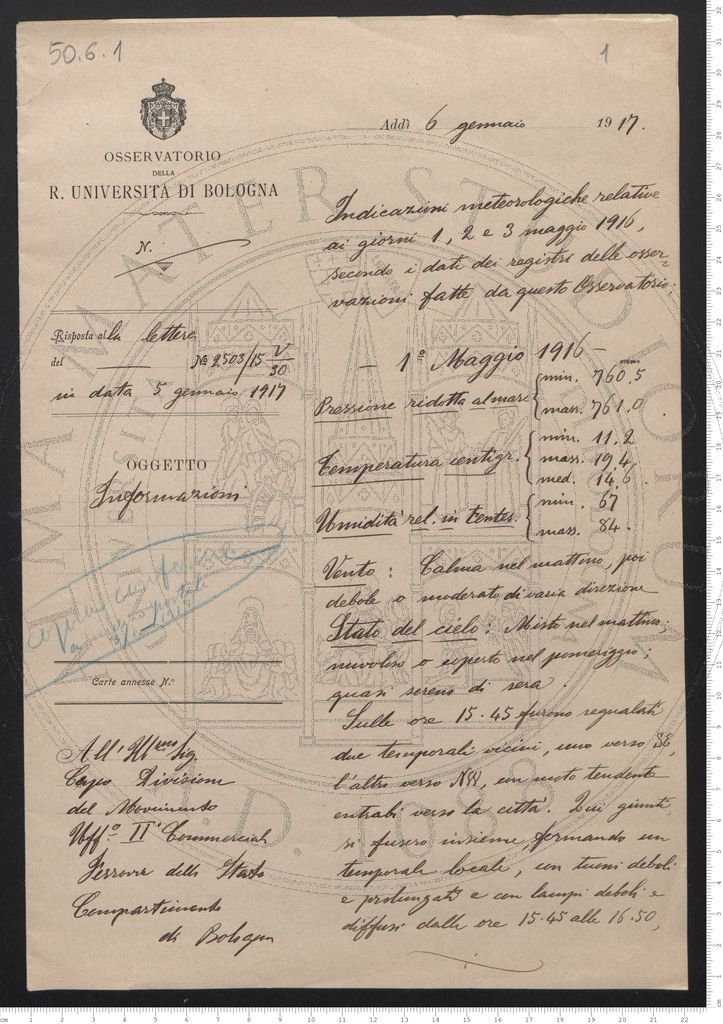 50.6.1
1
OSSERVATORIO
DELLA
R. UNIVERSITÀ DI BOLOGNA
N.
Addì 6 gennaio 1917.
Risposta alla lettera
del Nº 2503/15 V/30
in data 5 gennaio 1917
OGGETTO
Informazioni
copia conforme
Carte annesse N.º
All' Ill.mo Sig.
Capo Divisione
del Movimento
Uff.º IIº Commerciale
Ferrovie dello Stato
Compartimento
di Bologna
Indicazioni meteorologiche relative
ai giorni 1, 2 e 3 maggio 1916,
secondo i dati dei registri delle osser-
vazioni fatte da questo Osservatorio.
— 1º Maggio 1916 —
Pressione ridotta al mare { min. 760.5 mm
mass. 761.0
Temperatura centigr. { min. 11.2
mass. 19.4
med. 14.6
Umidità rel. in centes. { min. 67
mass. 84.
Vento: Calma nel mattino, poi
debole o moderato di varia direzione
Stato del cielo: Misto nel mattino;
nuvoloso o coperto nel pomeriggio;
quasi sereno di sera.
Sulle ore 15.45 furono segnalati
due temporali vicini, uno verso SE,
l'altro verso NW, con moto tendente
entrambi verso la città. Qui giunti,
si fusero insieme, formando un
temporale locale, con tuoni deboli
e prolungati e con lampi deboli e
diffusi dalle ore 15.45 alle 16.50,
ALMA MATER STUDIORUM
A.D. 1088